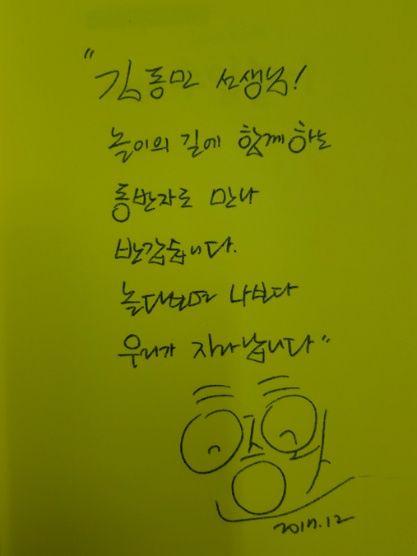 "김동민 선생님!
놀이의 길에 함께하는
동반자로 만나
반갑습니다.
놀다보면 나보다
우리가 자라납니다"
2017.12